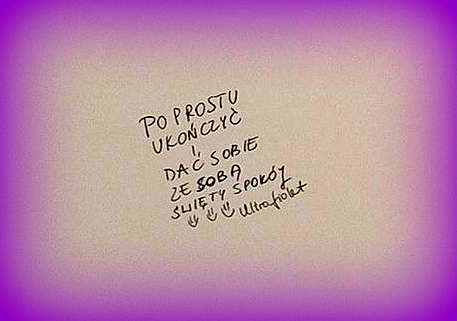 PO PROSTU
UKOŃCZYĆ
I
DAĆ SOBIE
ZE SOBĄ
ŚWIĘTY SPOKÓJ
Ultrafiolet